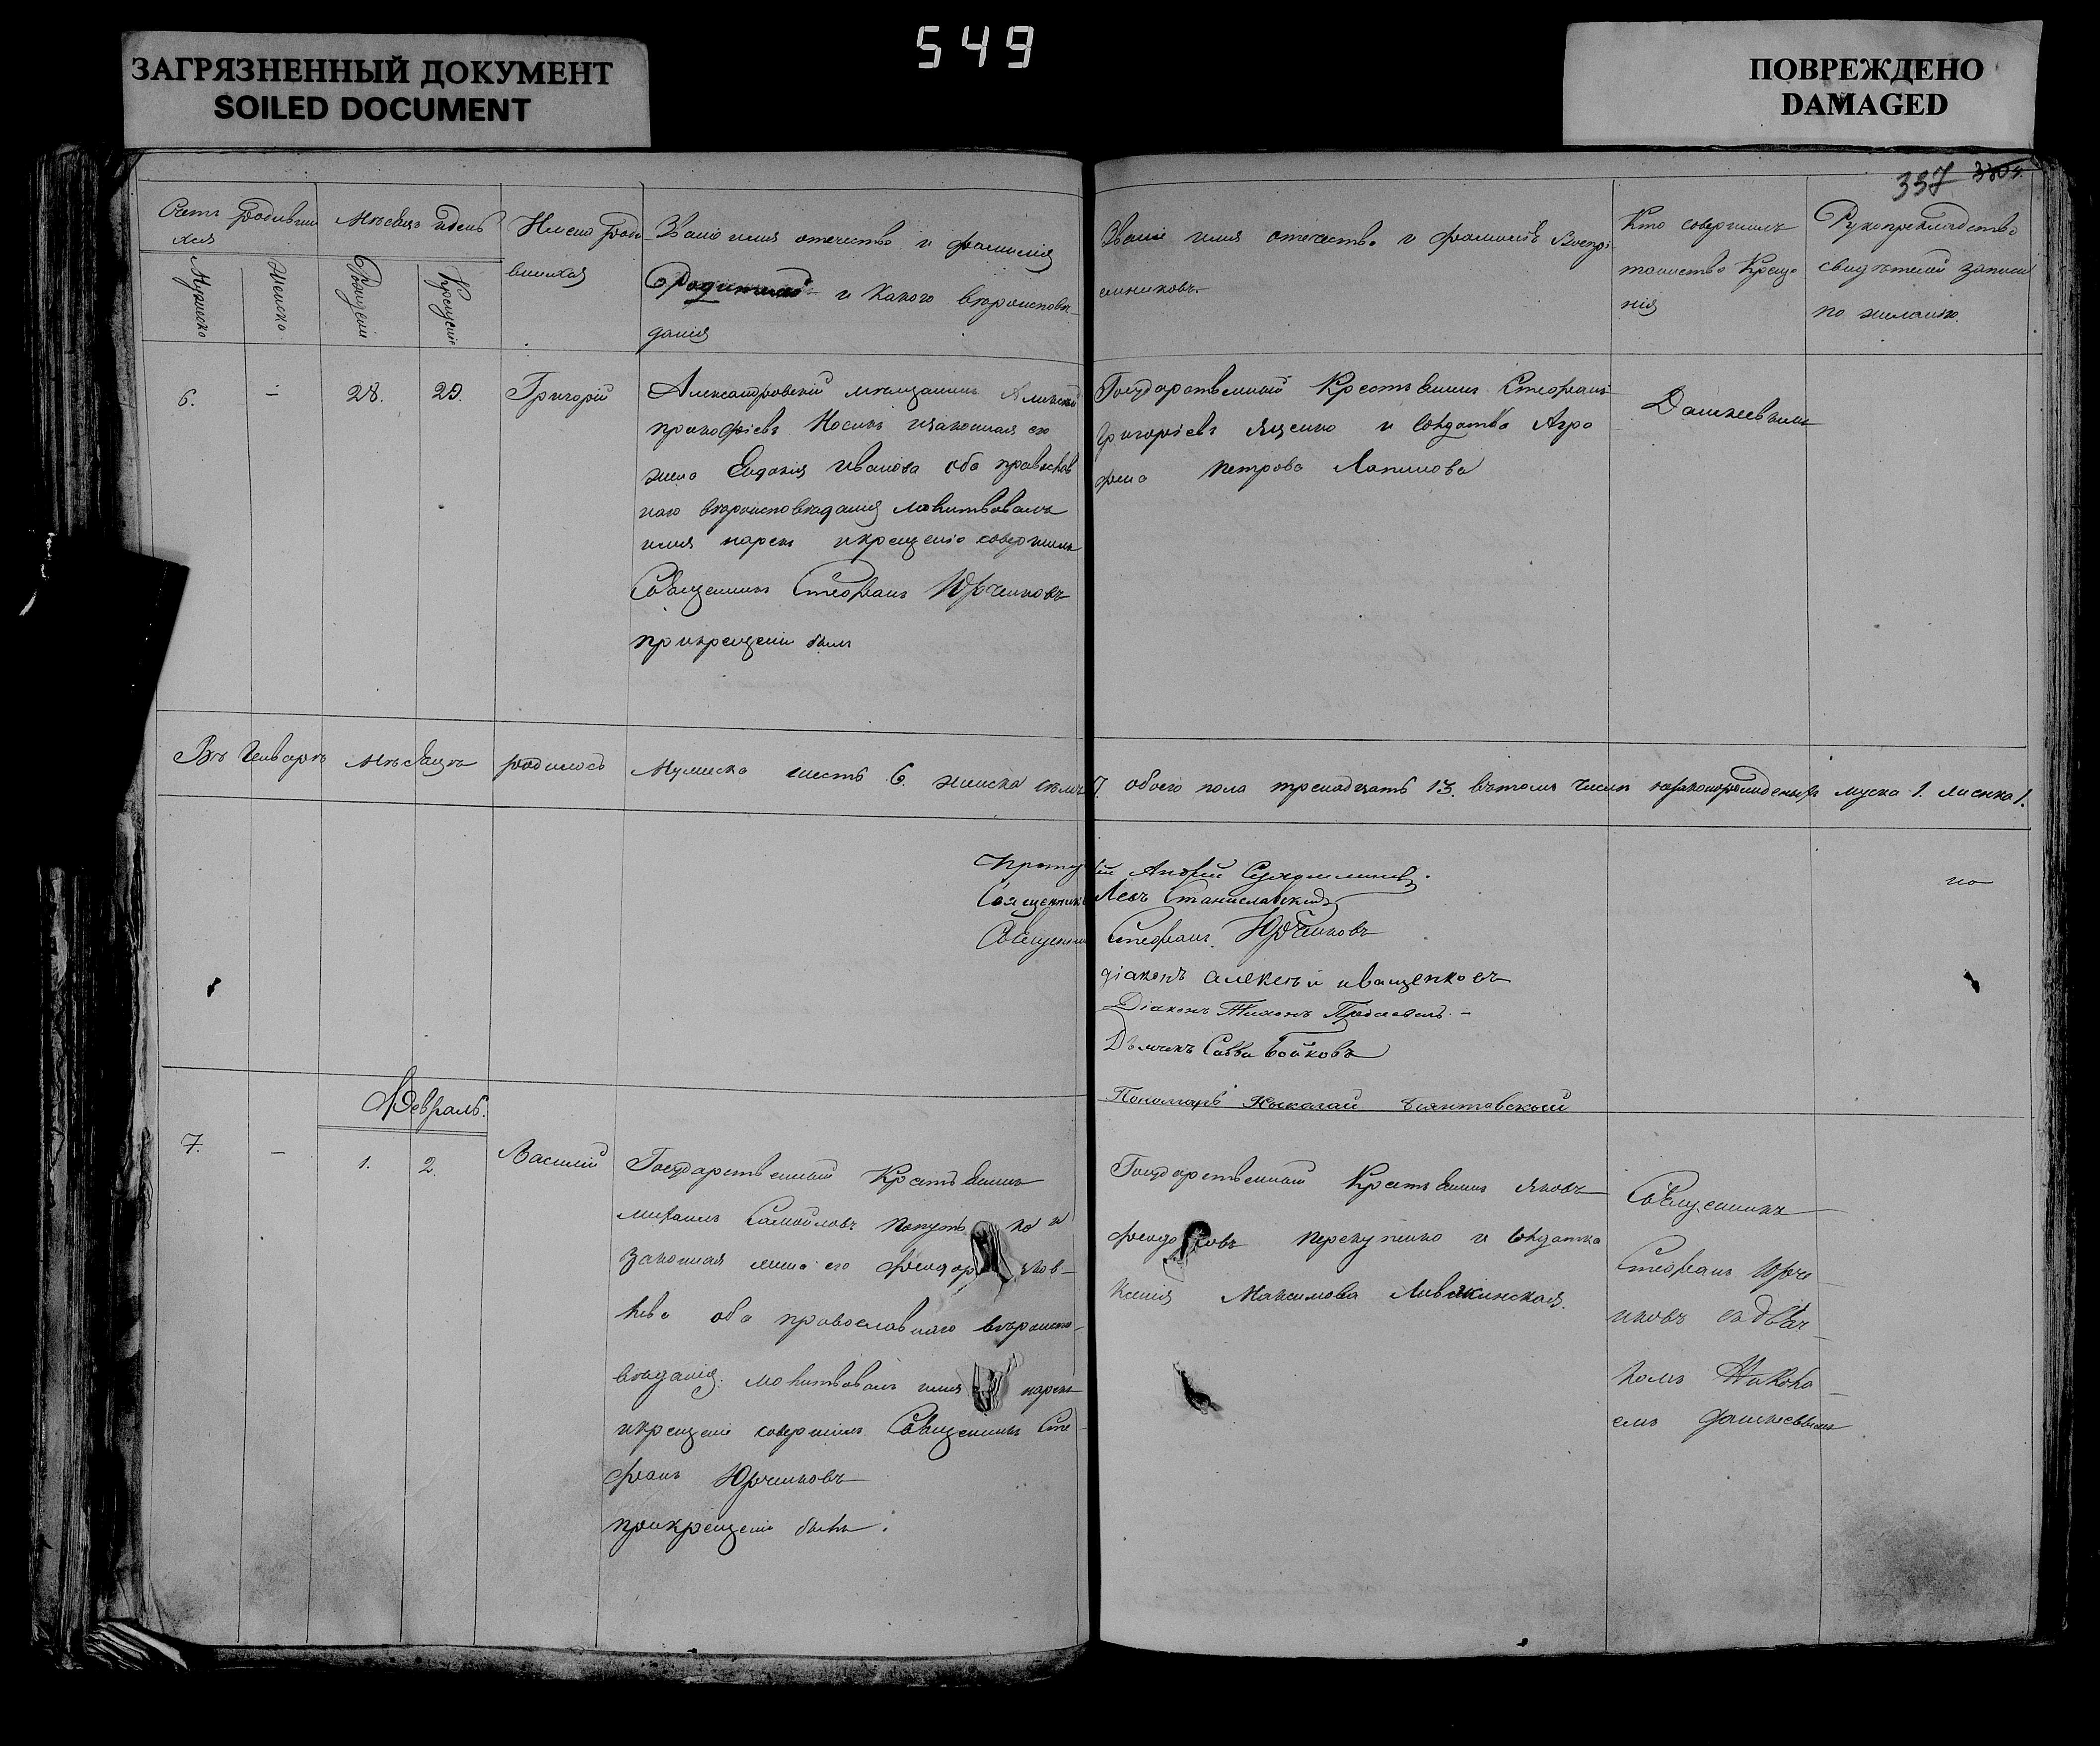 549
ЗАГРЯЗНЕННЫЙ ДОКУМЕНТ
SOILED DOCUMENT
ПОВРЕЖДЕНО
DAMAGED
337
Счетъ родивши
хся
Мѣсяцъ и день
Имена роди
вшихся
Званіе имя отечество и фамилія
Родителей и какого вѣроисповѣ-
данія
Мужеска
Женска
Рожденія
Крещенія
Званіе имя отечество и фамилія воспрі-
емниковъ.
Кто совершилъ
таинство Креще
нія
Рукоприкладство
свидѣтелей записи
по желанію.
6.
—
28.
29.
Григорій
Александровскій мещанинъ
Прокофіевъ Носикъ и законная его
жена Евдокія Иванова оба православ
наго вѣроисповѣданія молитвовалъ
имя нарекъ и крещеніе совершилъ
Священникъ Стефанъ Юрченковъ
при крещеніи былъ
Государственный Крестьянинъ Стефанъ
Григорьевъ Яценко и солдатка Агро
фена Петрова Логинова
Дашкевичемъ
Въ Генварѣ мѣсяцѣ родилось Мужеска шесть 6. женска семь 7. обоего пола тринадцать 13. въ томъ числѣ незаконорожденыхъ мужска 1. женска 1.
Протоіерей Андрей Сухомлиновъ.
Священникъ Левъ Станиславскій
Священникъ Стефанъ Юрченковъ
діаконъ алексѣй иващенковъ
Діаконъ Тимонъ
Дьячекъ Савва Бойковъ
Пономарь Николай
по
Февраль.
7.
—
1.
2.
Василій
Государственный Крестьянинъ
Михаилъ Самойловъ ко и
законная жена его Феодора Яков-
лева оба православнаго вѣроиспо-
вѣданія. молитвовалъ имя нарекъ
и крещеніе совершилъ Священникъ Сте-
фанъ Юрченковъ
при крещеніи былъ.
Государственный Крестьянинъ Яковъ
Феодоровъ и солдатка
Ксенія Максимова
Священникъ
Стефанъ Юрче-
нковъ съ дьяч-
комъ Никола-
емъ Дашкевичемъ